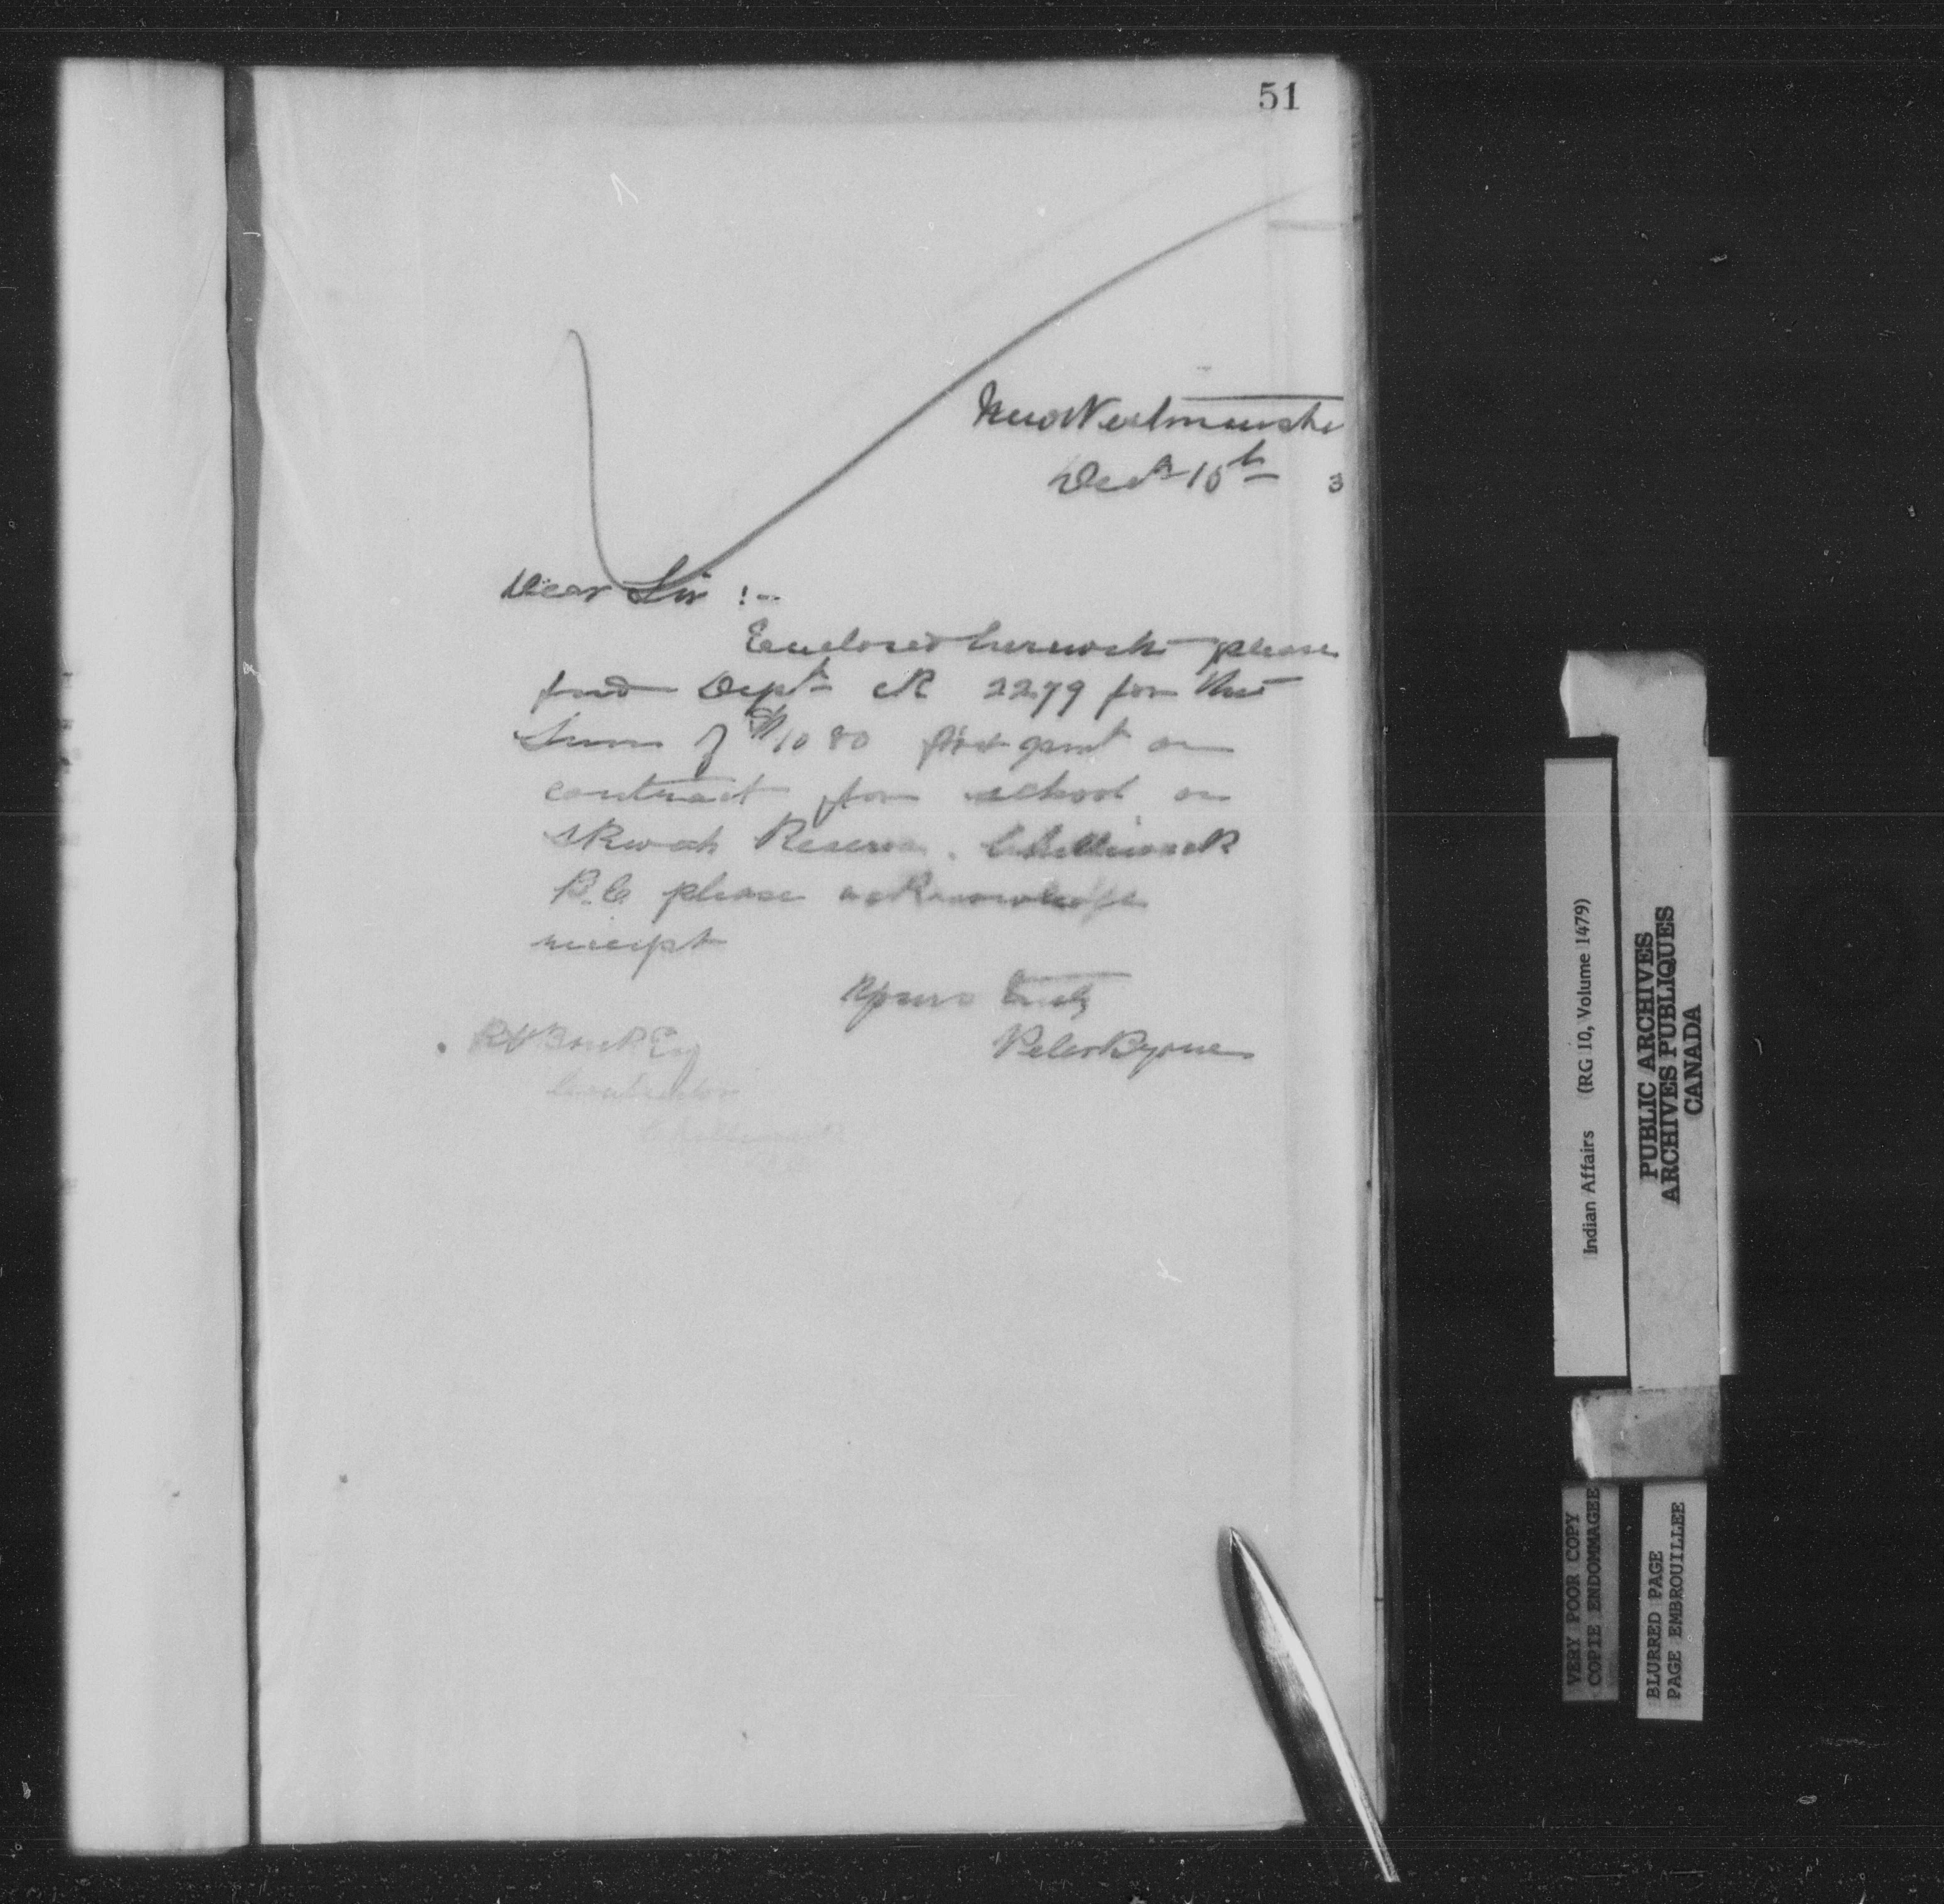 51
New Westminster
Dec 15th 3
Dear Sir :-
Enclosed herewith please
find Dept. ck 2279 for the
Sum of $1080 first pmt on
contract for school on
Skwah Reserve. Chilliwack
B.C please acknowledge
receipt
Yours truly
Peter Byrne
Esq
Contractor
Chilliwack
Indian Affairs (RG 10, Volume 1479)
PUBLIC ARCHIVES
ARCHIVES PUBLIQUES
CANADA
VERY POOR COPY
COPIE ENDOMMAGEE
BLURRED PAGE
PAGE EMBROUILLEE